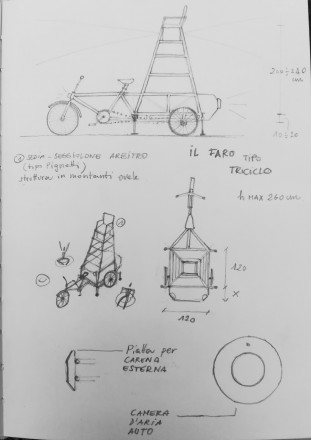 200÷240
cm
10÷20
① SEDIA - SEGGIOLONE ARBITRO
(tipo Pignatti)
struttura in montanti ovale
IL FARO TIPO
TRICICLO
h MAX 260 cm
①
120
X
120
Piatto per
CARENA
ESTERNA
CAMERA
D'ARIA
AUTO